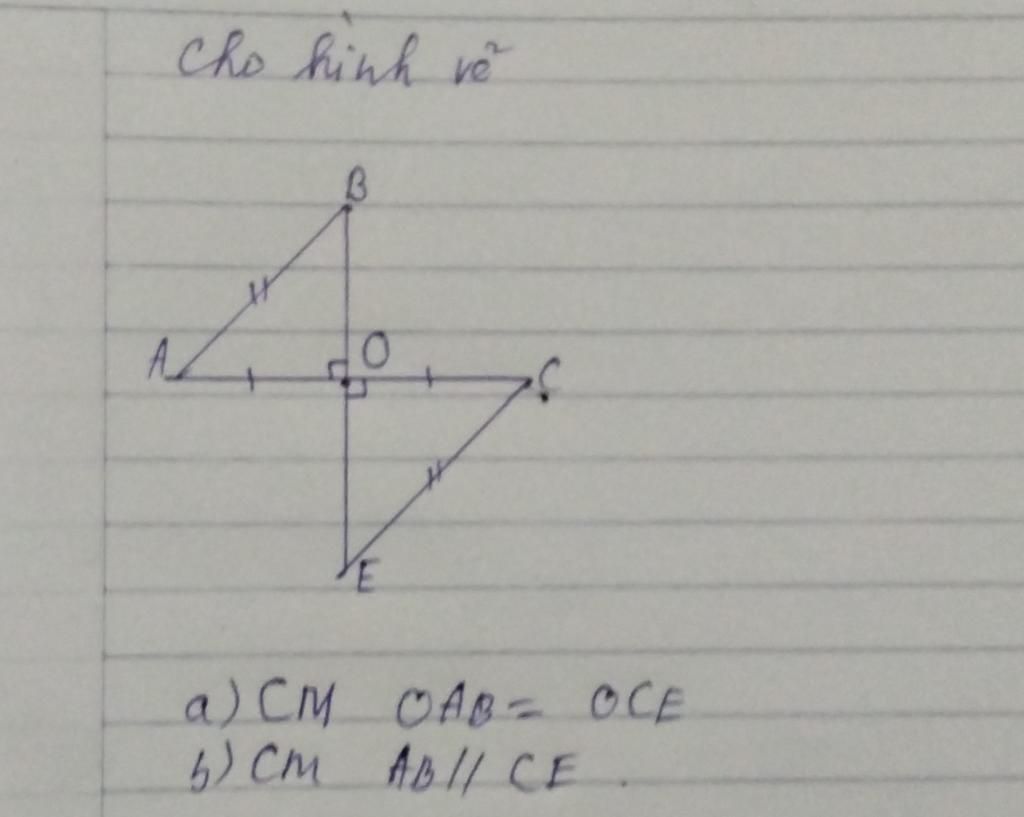 Cho hình vẽ
B
A
O
C
E
a) CM OAB = OCE
b) CM AB // CE.